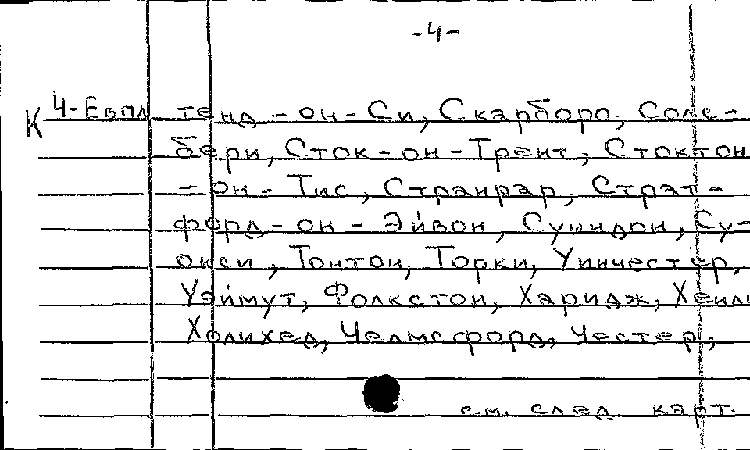 -4-
К 4-Евпл тенд-он-Си, Скарборо, Солс-
бери, Сток-он-Трент, Стоктон
-он-Тис, Странрар, Страт-
форд-он-Эйвон, Суиндон, Су-
онси, Тонтон, Торки, Уинчестер,
Уэймут, Фолкстон, Харидж, Хейл
Холихед, Челмсфорд, Честер,
см. след. карт.